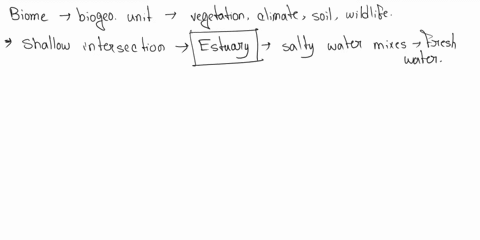 Biome → biogeo. unit → vegetation, climate, soil, wildlife.
* Shallow intersection → Estuary → salty water mixes → Fresh
water.